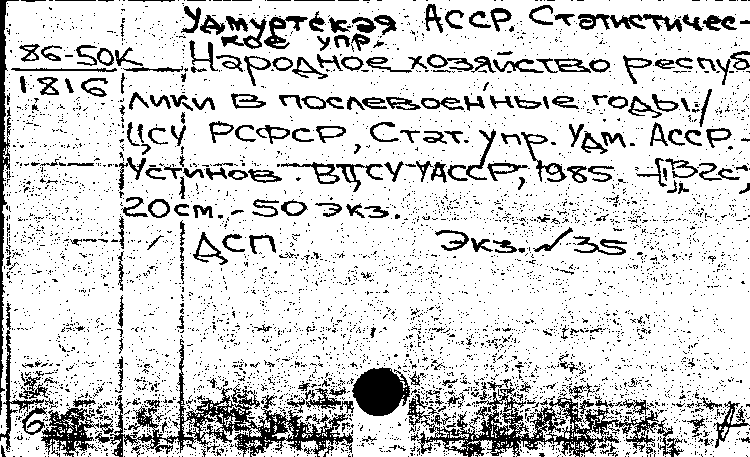 Удмуртская АССР. Статистичес-
кое упр.
86-50К Народное хозяйство респуб
1816 лики в послевоенные годы /
ЦСУ РСФСР, Стат. упр. Удм. АССР. -
Устинов. ВЦСУ УАССР, 1985. -
20 см. - 50 экз.
ДСП Экз. № 35.
6